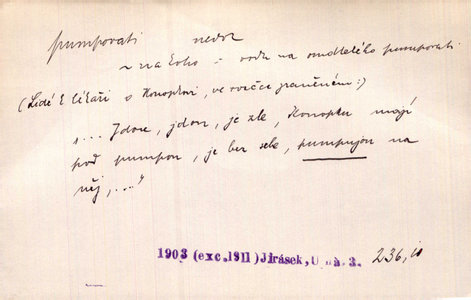 pumpovati nedok
~ na koho - vodu na omdlelého pumpovati
(Lidé z lékaři o Konopkovi, ve rvačce zraněném:)
„... Jdou, jdou, je zle, Konopku mají
pod pumpou, je bez sebe, pumpujou na
něj,..."
1903 (exc. 1911) Jirásek, U nás. 3. 236,